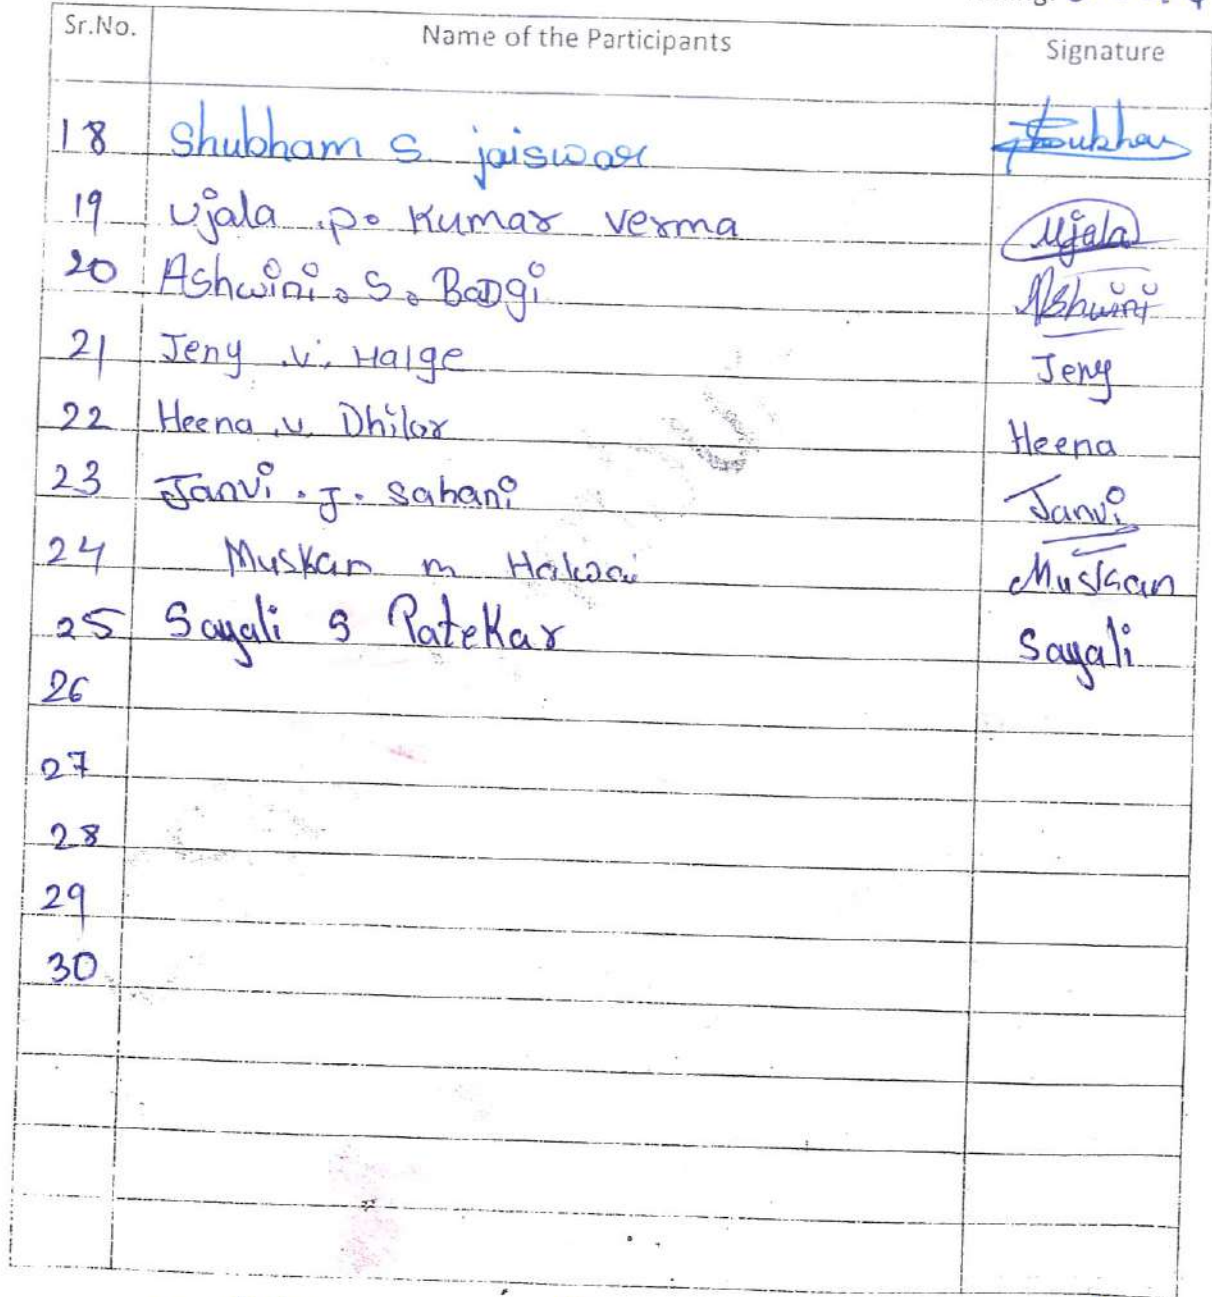 Sr.No. Name of the Participants Signature
18 Shubham S. jaiswar Shubham
19 Ujala .p. Kumar Verma Ujala
20 Ashwini. S. Bangi Ashwini
21 Jeny .V. Halge Jeny
22 Heena .v. Dhilor Heena
23 Janvi . J. Sahani Janvi
24 Muskan m Muskaan
25 Sayali S Patekar Sayali
26
27
28
29
30